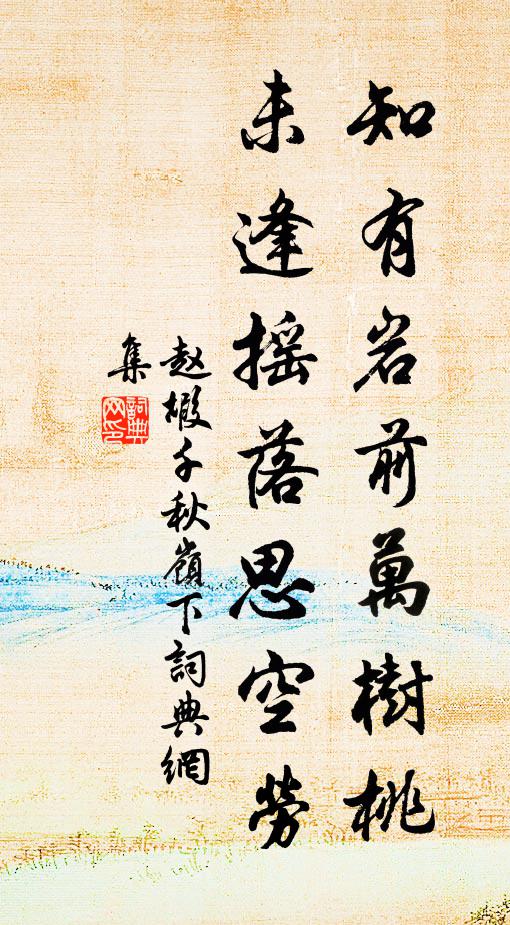 知有岩前萬樹桃
未逢搖落思空勞
赵嘏千秋嶺下詞典網
集
詞典
网印